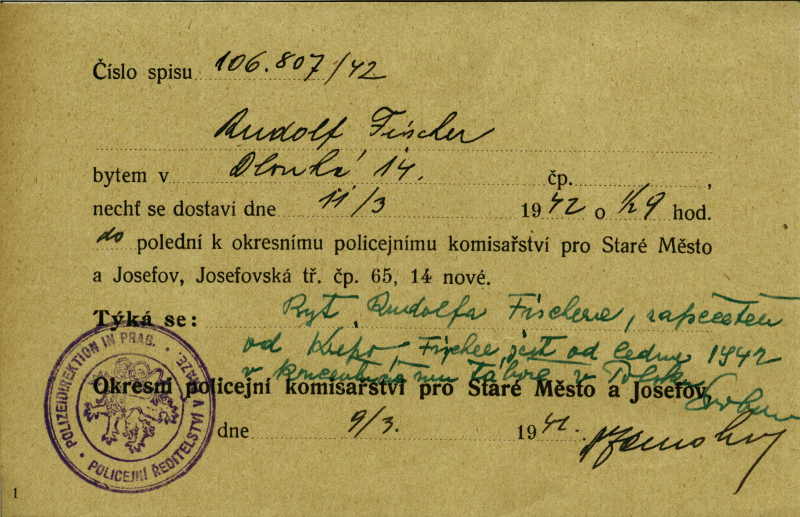 Číslo spisu 106.807/42
Rudolf Fischer
bytem v Dlouhá 14. čp. ,
nechť se dostaví dne 11/3 1942 o 1/29 hod.
do polední k okresnímu policejnímu komisařství pro Staré Město
a Josefov, Josefovská tř. čp. 65, 14 nové.
Týká se: Byt Rudolfa Fischera, zapečetěn
od Fischer jest od ledna 1942
v koncentračním táboře v Polsku
Okresní policejní komisařství pro Staré Město a Josefov,
dne 9/3. 1942.
POLIZEIDIREKTION IN PRAG.
POLICEJNÍ ŘEDITELSTVÍ V PRAZE.
1